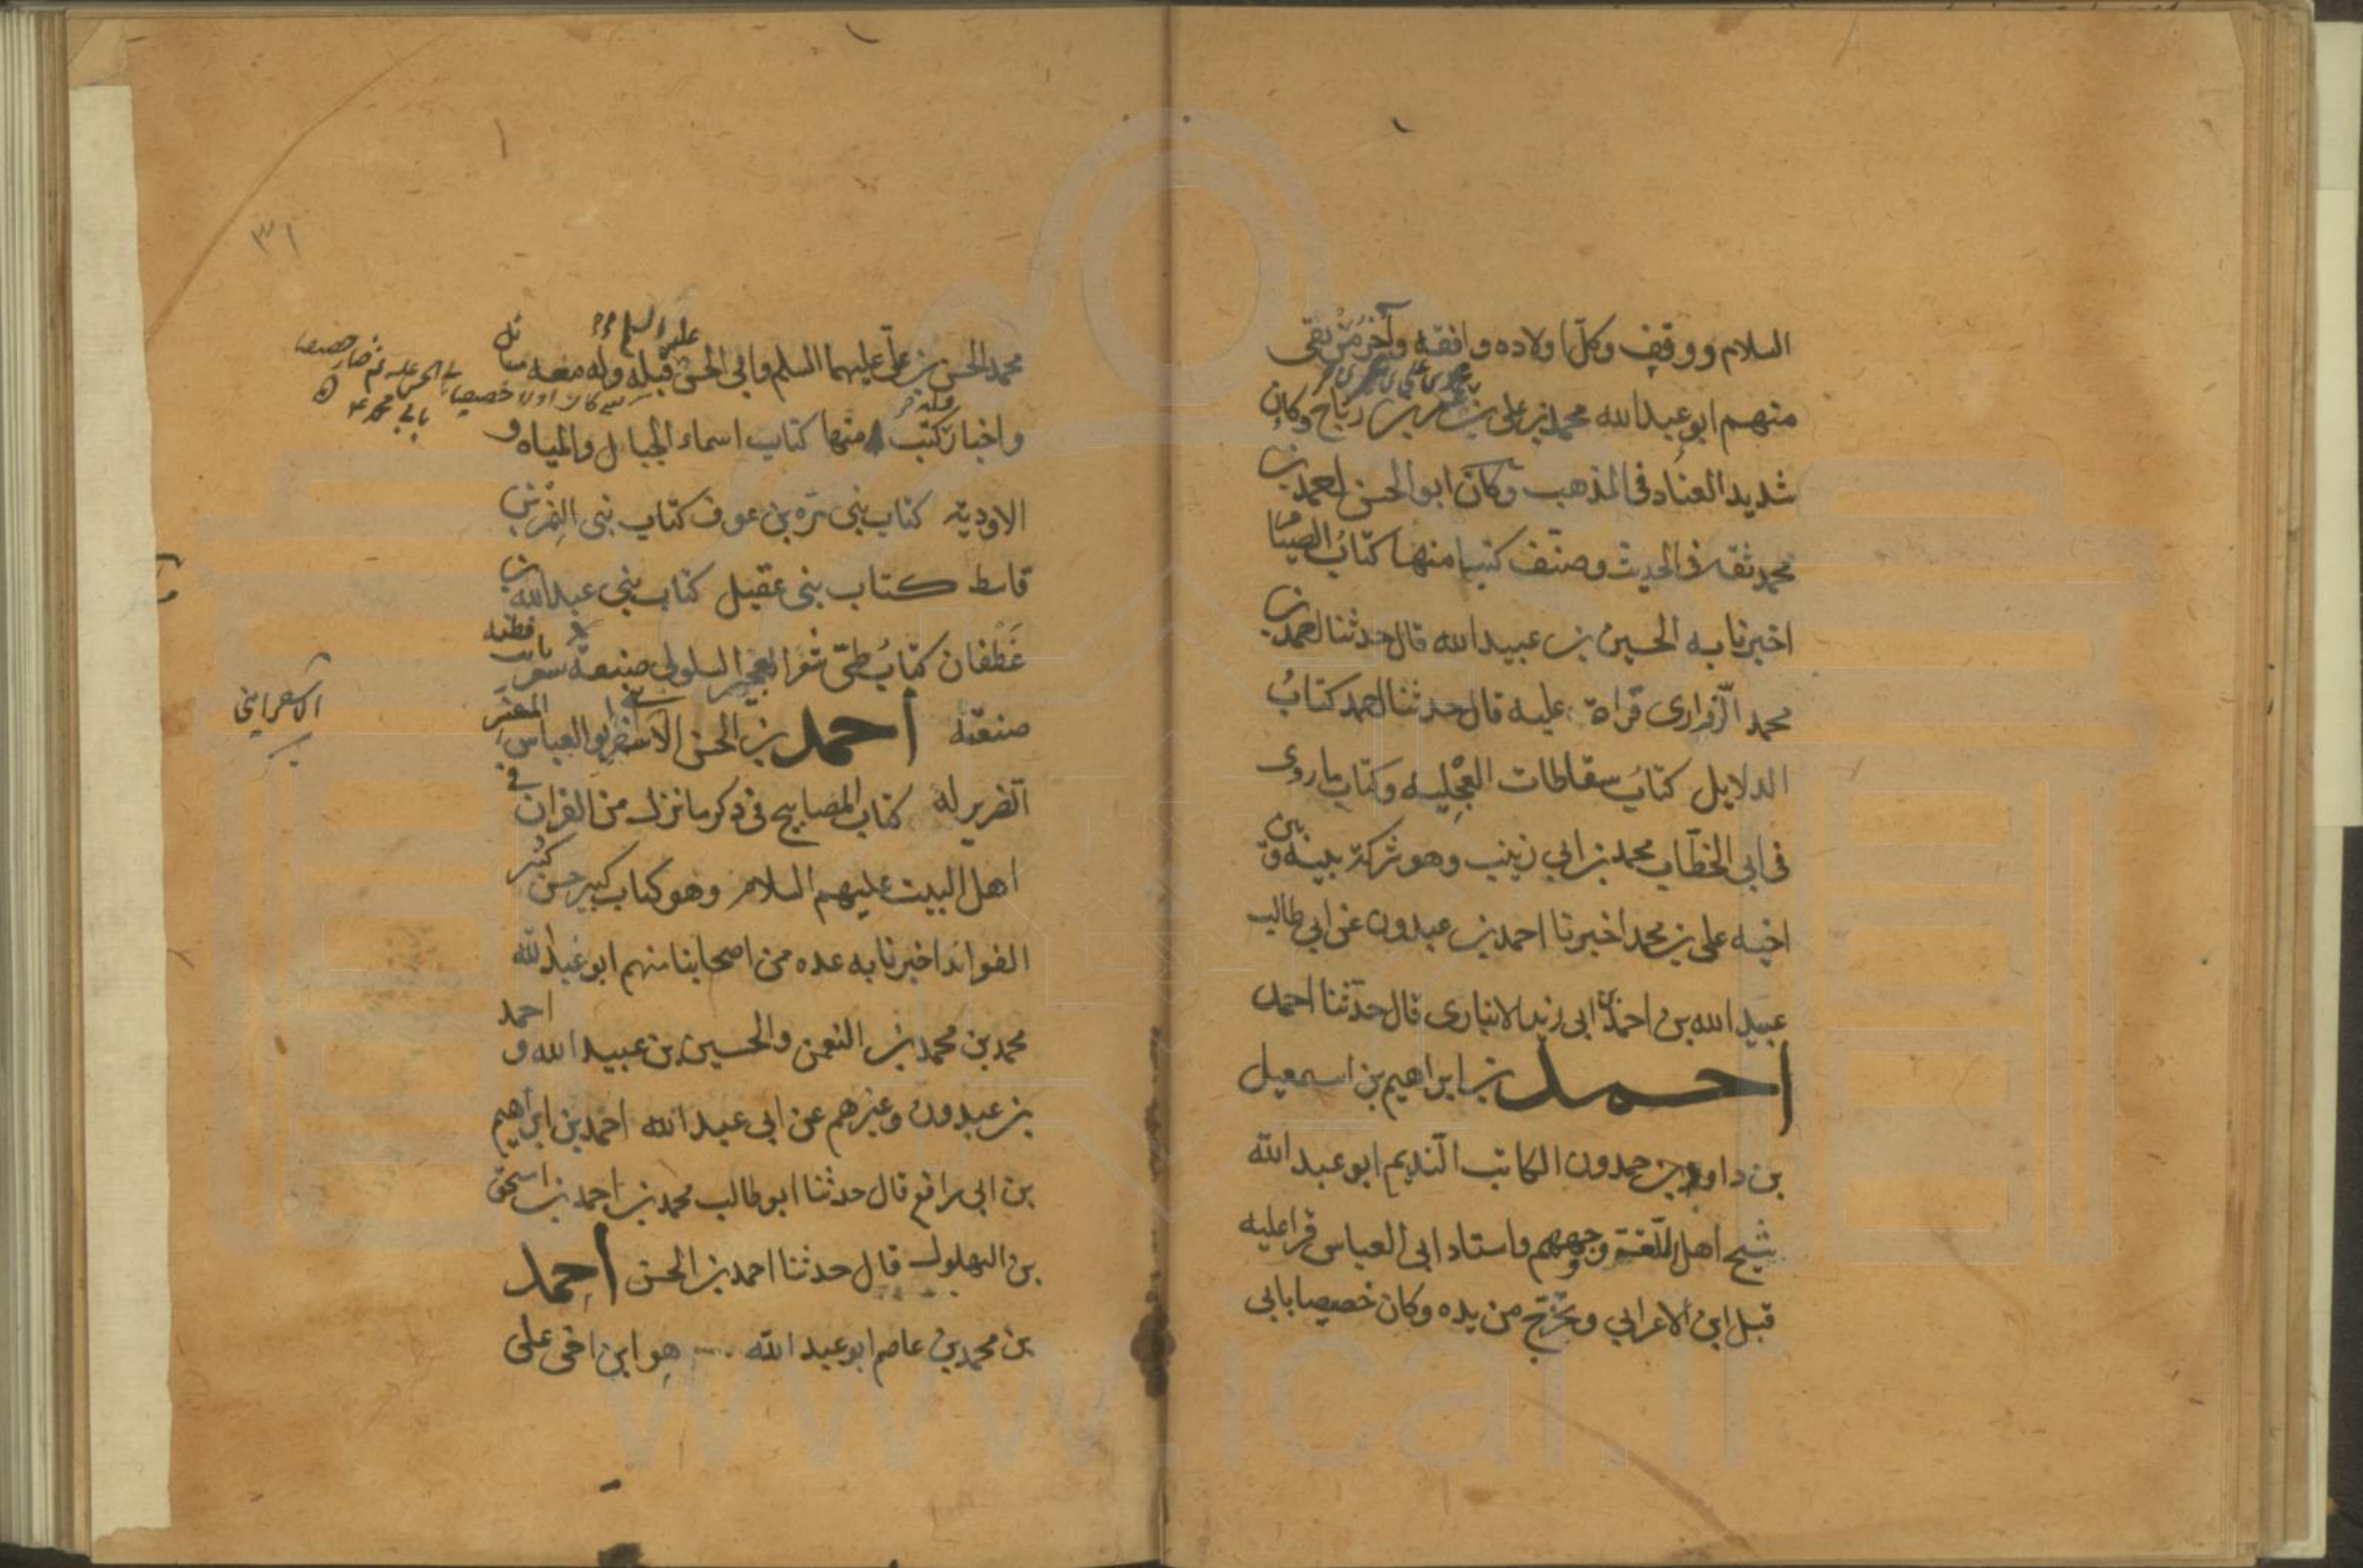 السلام ووقف وكل اولاده وافقه وآخر من بقى
منهم ابو عبدالله محمد بن على بن رباح وكان
شديد العناد في المذهب وكان ابو الحسن احمد بن
محمد ثقة في الحديث وصنف كتبا منها كتاب الصيام
اخبرنا به الحسين بن عبيد الله قال حدثنا احمد بن
محمد الزراري قراة عليه قال حدثنا احمد كتاب
الدلايل كتاب سقاطات العجلية وكتاب ما روى
في ابي الخطاب محمد بن ابي زينب وهو شركة بينه وبين
اخيه على بن محمد اخبرنا احمد بن عبدون عن ابي طالب
عبيد الله بن احمد بن ابي زيد الانباري قال حدثنا احمد
احمد بن ابراهيم بن اسمعيل
بن داود بن حمدون الكاتب النديم ابو عبد الله
شيخ اهل اللغة ووجههم واستاد ابي العباس قرا عليه
قبل ابن الاعرابي وتخرج من يده وكان خصيصا بابي
٣١
محمد الحسن بن على عليهما السلم وابي الحسن قبله وله معه مسائل
عليه السلم
واخبار كتب منها كتاب اسماء الجبال والمياه و
الاودية كتاب بني مرة بن عوف كتاب بني النمر بن
قاسط كتاب بني عقيل كتاب بني عبد الله بن
غطفان كتاب طي شعر العجير السلولي صنعة شعر ثابت قطنه
صنعته احمد بن الحسن الاسفرايني ابو العباس المفسر
الاسفرايني
الضرير له كتاب المصابيح في ذكر ما نزل من القران في
اهل البيت عليهم السلام وهو كتاب كبير حسن كثير
الفوائد اخبرنا به عده من اصحابنا منهم ابو عبد الله
محمد بن محمد بن النعمن والحسين بن عبيد الله و احمد
بن عبدون وغيرهم عن ابي عبد الله احمد بن ابراهيم
بن ابي رافع قال حدثنا ابو طالب محمد بن احمد بن اسحق
بن البهلول قال حدثنا احمد بن الحسن احمد
بن محمد بن عاصم ابو عبد الله هو ابن اخي على